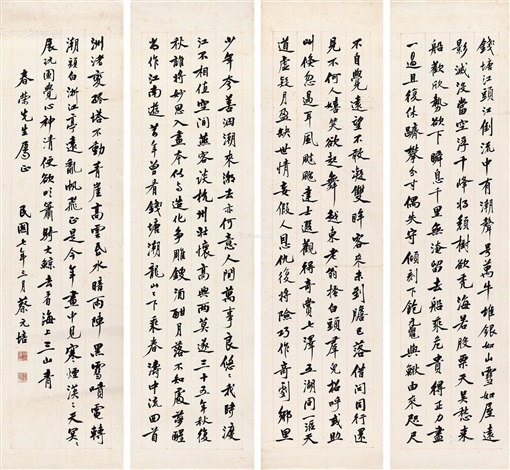 錢塘江頭江倒流中有潮聲号萬牛堆銀如山雪如屋遠
影滅沒當空浮千峰將頹樹欲禿海若股栗天吳愁來
船歡欣勢欲下瞬息千里無淹留去船乘危貴得正力盡
一過且復休躋攀分寸偶失守傾刻下飽黿與鰍由來咫尺
不自覺遠望不敢凝雙眸客來未到膽已落借問同行還
見不何人嬉笑欲起舞越東老翁搔白頭群兒招呼或助
叫倏忽過耳風颼颼達士遐觀得奇賞七澤五湖同一涯天
道虛疑月盈缺世情妄假人恩仇後將險巧作奇劇鄉里
少年夸善泅潮來潮去亦何意人間萬事良悠悠我時渡
江不相值空聞燕客談杭州壯懷高興兩莫遂三十五年秋復
秋誰將妙思入畫本似與造化爭雕鎪酒酣月落不知處夢醒
尚作江南遊昔年曾看錢塘潮龍山山下乘春濤中流回首
洲渚變孤塔不動青崖高雲昏水暗兩陣黑雪噴雷轉
潮頭白浙江亭遠亂帆飛正是今年畫中見寒煙漠漠天冥冥
展玩圖覺心神清便欲吹簫騎大鯨去看海上三山青
春榮先生屬正
民國七年三月蔡元培